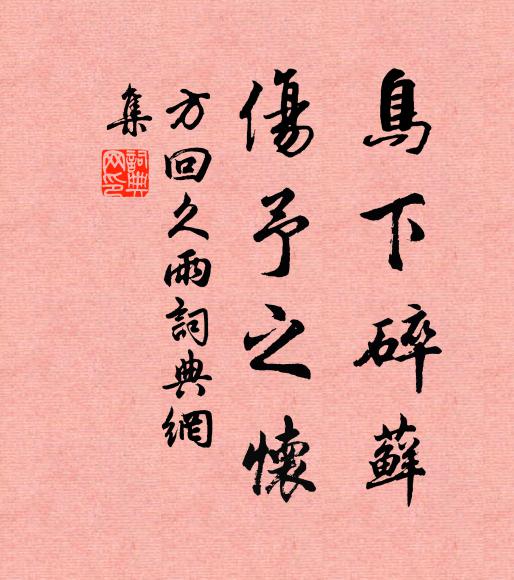 鳥下碎蘚
傷予之懷
方回久雨詞典網
集
詞典網印